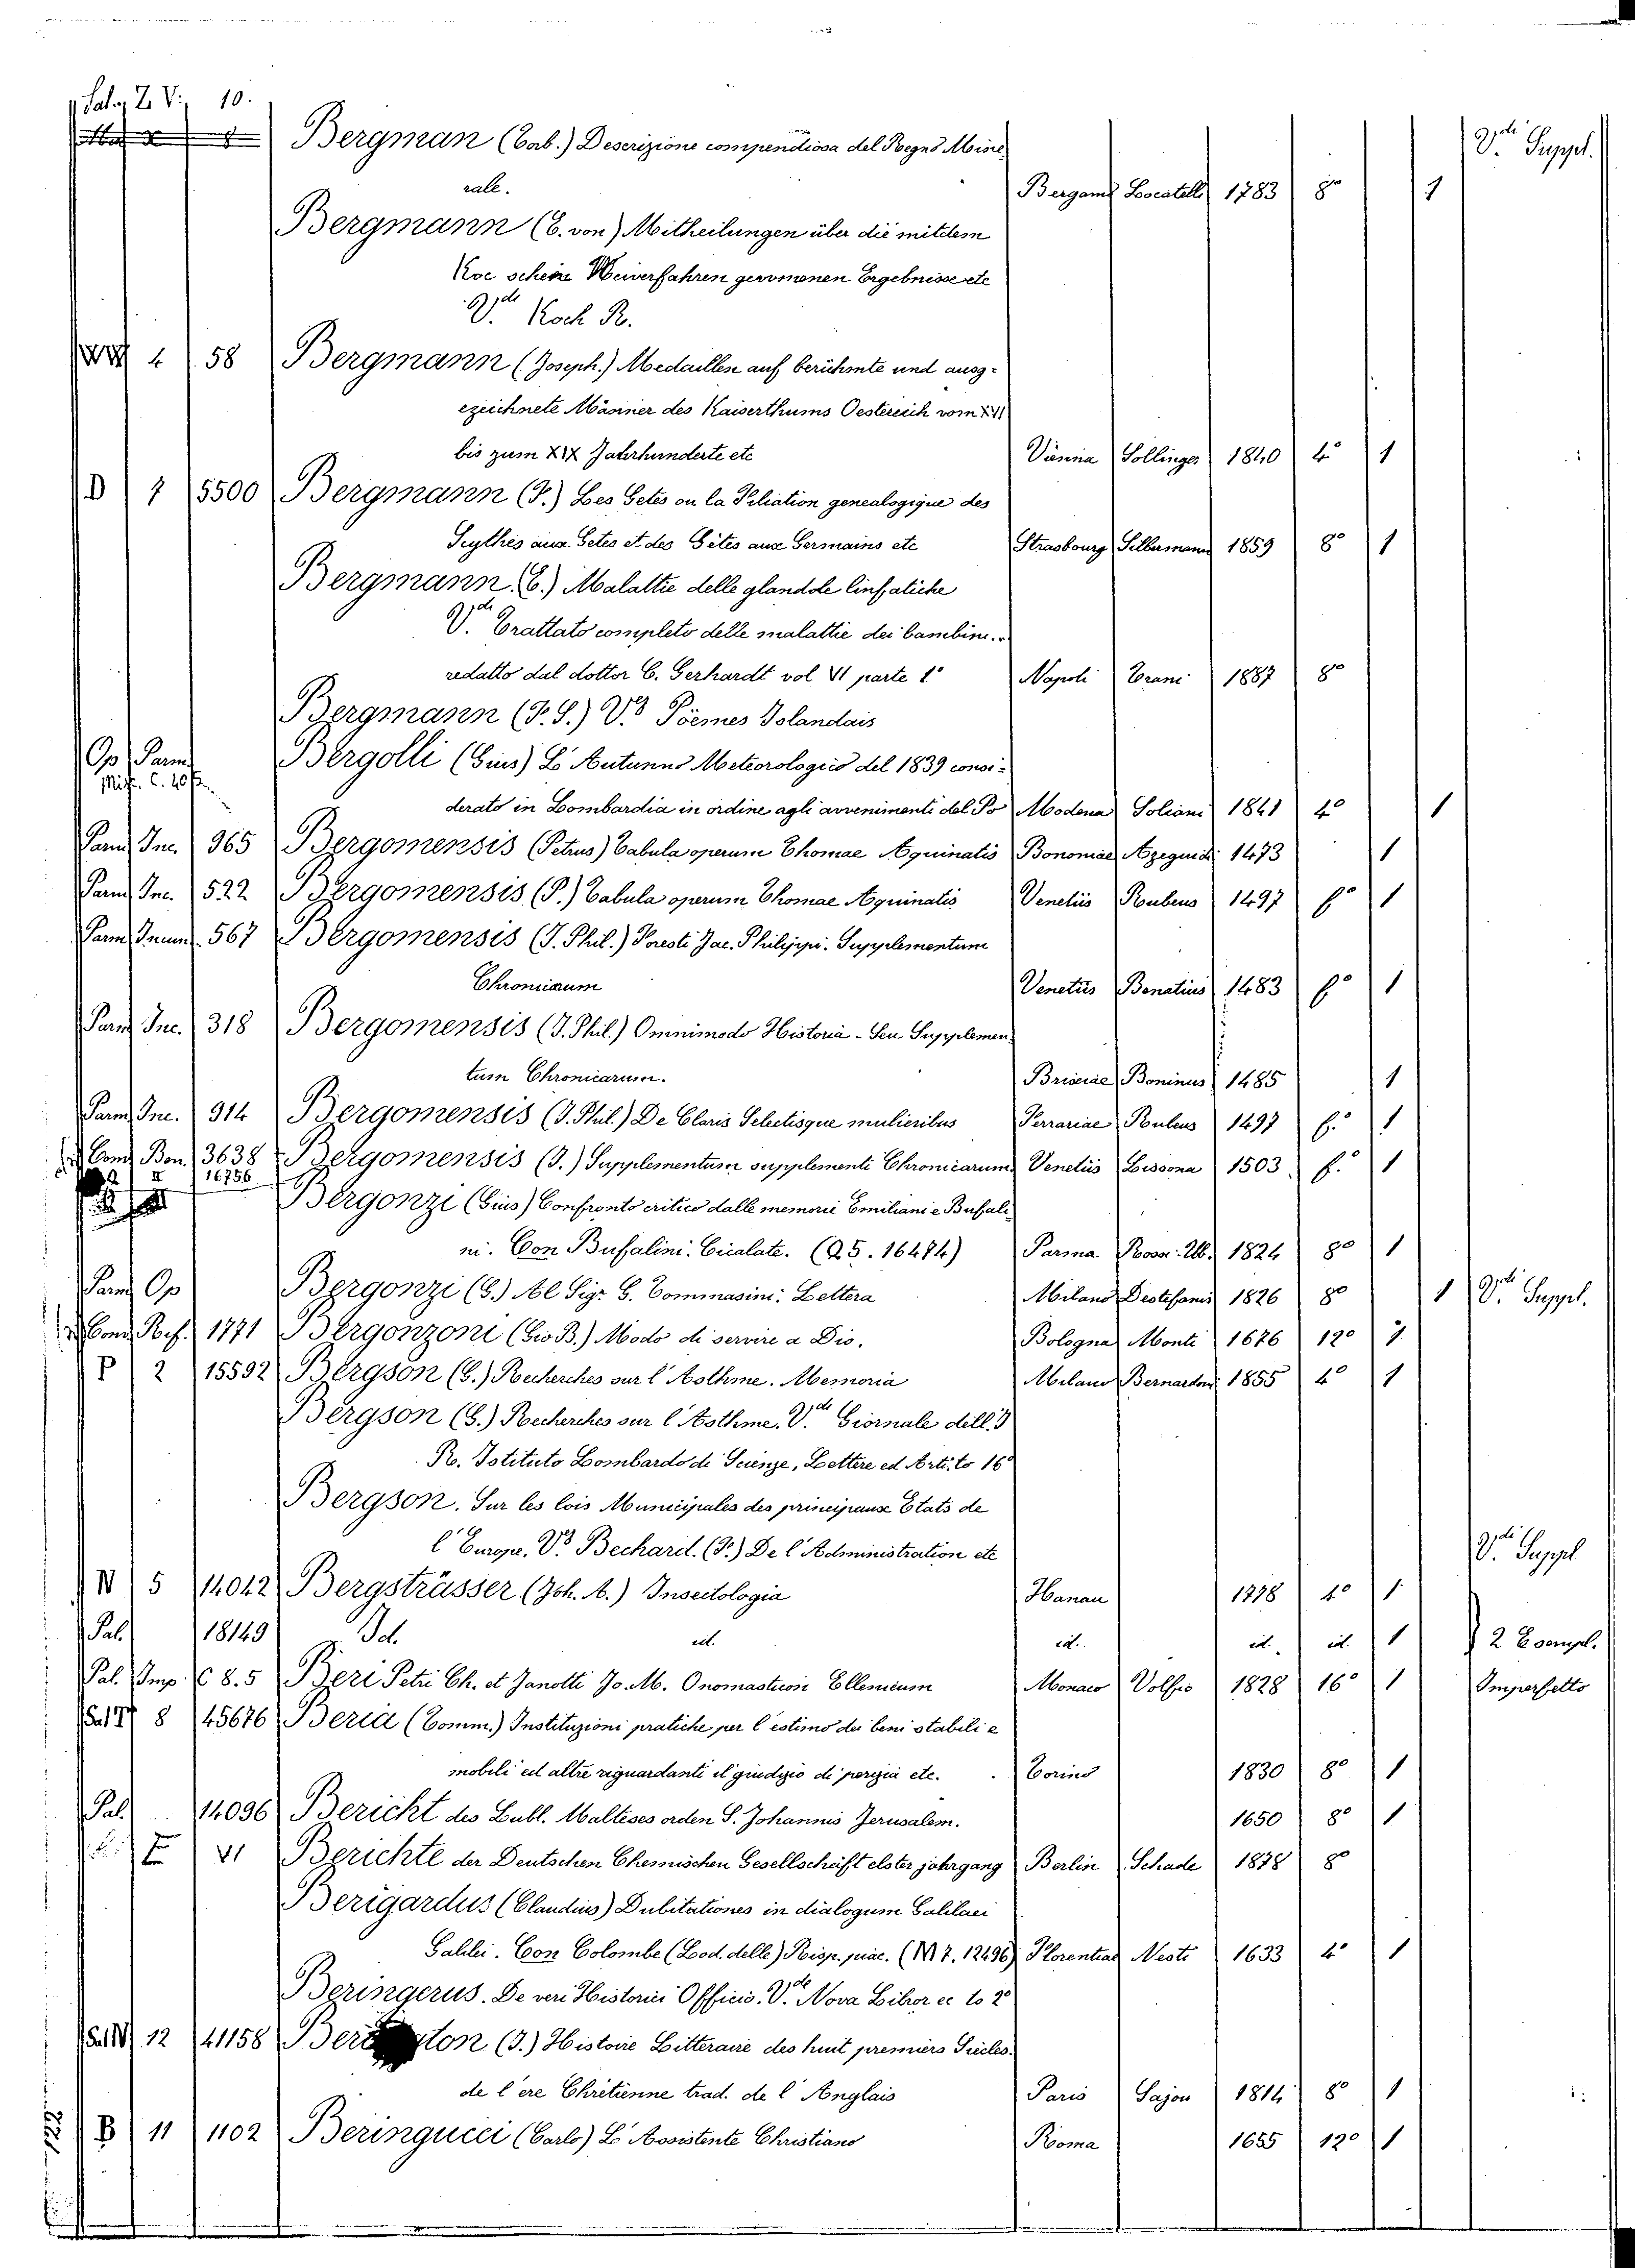 Sal. Z. V. 10.
Bergman (Tob.) Descrizione compendiosa del Regno Mine V.di Suppl.
rale. Bergamo Locatelli 1783 8° 1
Bergmann (E. von) Mitheilungen über die mitdem
Koc schene Weiverfahren gevomenen Ergebnisse etc
V.di Koch R.
4 58 Bergmann (Joseph.) Medaillen auf berühmte und ausg-
ezeichnete Männer des Kaiserthums Oestereich vom XVI
bis zum XIX Jahrhunderte etc Vienna Sollinger 1840 4° 1
D 7 5500 Bergmann (F.) Les Getes ou la Filiation genealogique des
Scythes aux Getes et des Gètes aux Germains etc Strasbourg Silbermann 1859 8° 1
Bergmann. (E.) Malattie delle glandole linfatiche
V.di Trattato completo delle malattie dei bambini..
redatto dal dottor C. Gerhardt vol VI parte 1ª Napoli Trani 1887 8°
Bergmann (F. G.) V.di Pöemes Islandais
Op Parm Bergolli (Gius) L'Autunno Meteorologico del 1839 consi-
Misc. C. 40
derato in Lombardia in ordine agli avvenimenti del Po Modena Soliani 1841 4° 1
Parm Inc. 965 Bergomensis (Petrus) Tabula operum Thomae Aquinatis Bononiae Azeguidi 1473 1
Parm Inc. 522 Bergomensis (P.) Tabula operum Thomae Aquinatis Venetiis Rubeus 1497 f° 1
Parm Incun. 567 Bergomensis (J. Phil.) Foresti Jac. Philippi. Supplementum
Chronicarum Venetiis Benatius 1483 f° 1
Parm Inc. 318 Bergomensis (J. Phil.) Omnimodo Historia - Seu Supplemen
tum Chronicarum. Brixiae Boninus 1485 1
Parm Inc. 914 Bergomensis (J. Phil.) De Claris Selectisque mulieribus Ferrariae Rubeus 1497 f.° 1
Com Bon. 3638 Bergomensis (J.) Supplementum supplementi Chronicarum Venetiis Lissona 1503 f. 1
II 16756
Bergonzi (Gius) Confronto critico dalle memorie Emiliani e Bufali
ni. Con Bufalini. Cicalate. (Q 5. 16474) Parma Ross. Ub. 1824 8° 1
Parm Op Bergonzi (G.) Al Sigr G. Tommasini: Lettera Milano Destefanis 1826 8° 1 V.di Suppl.
Com Rof. 1771 Bergonzoni (Gio B.) Modo di servire a Dio. Bologna Monti 1676 12° 1
P 2 15592 Bergson (G.) Recherches sur l'Asthme. Memoria Milano Bernardoni 1855 4° 1
Bergson (G.) Recherches sur l'Asthme. V.di Giornale dell'I
R. Istituto Lombardo di Scienze, Lettere ed Arti. to 16°
Bergson. Sur les lois Municipales des principaux Etats de
l'Europe. V.di Bechard. (F.) De l'Administration etc V.di Suppl
N 5 14042 Bergsträsser (Joh. A.) Insectologia Hanau 1778 4° 1
Pal. 18149 Id. id. id. id. id. 1 2 Esempl.
Pal. Imp. C 8. 5 Beri Petri Ch. et Janotti Jo. M. Onomasticon Ellenicum Monaco Volfio 1828 16° 1 Imperfetto
8 45676 Beria (Comm.) Instituzioni pratiche per l'estimo dei beni stabili e
mobili ed altre riguardanti il giudizio di perizia etc. Torino 1830 8° 1
Pal. 14096 Bericht des Lubl. Malteses orden S. Johannis Jerusalem. 1650 8° 1
VI Berichte der Deutschen Chemischen Gesellschäift elster jahrgang Berlin Schade 1878 8°
Berigardus (Claudius) Dubitationes in dialogum Galilaei
Galilei. Con Colombe (Lod. delle) Risp. piac. (M 7. 12496) Florentiae Nesti 1633 4° 1
Beringerus. De veri Historici Officio. V.de Nova Libror ec to 2°
Sal IV 12 41158 ton (J.) Histoire Litteraire des huit premiers Siecles
de l'ere Chrétienne trad. de l'Anglais Paris Sajou 1814 8° 1
B 11 1102 Beringucci (Carlo) L'Assistente Christiano Roma 1655 12° 1